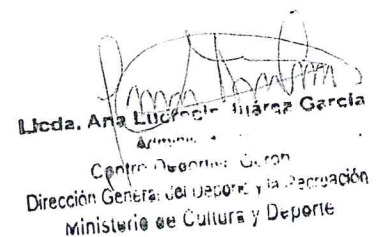 Licda. Ana Lucrecia Juárez García
Centro Deportivo
Dirección General del Deporte y la Recreación
Ministerio de Cultura y Deporte